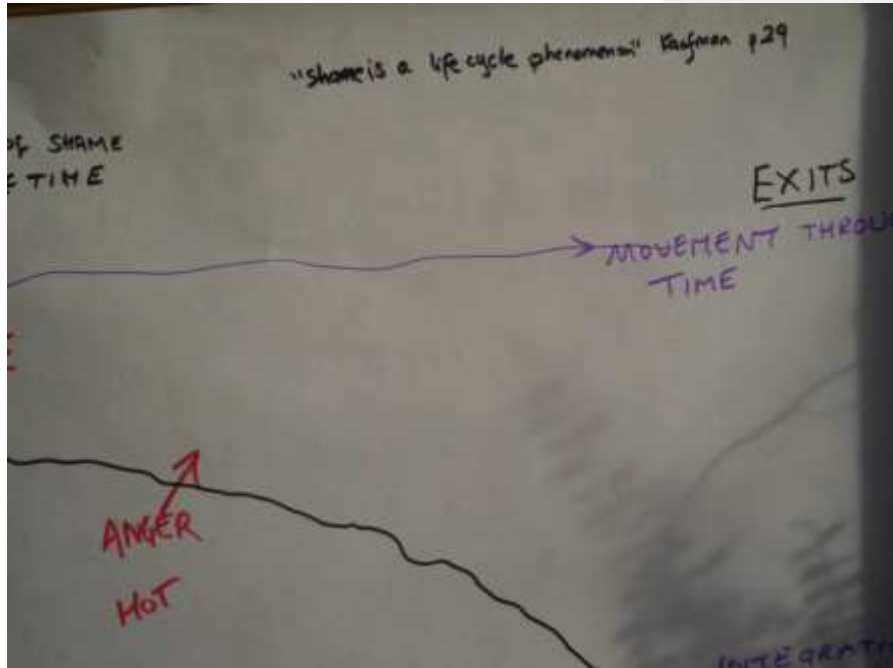 "Shame is a life cycle phenomenon" Kaufman p29
OF SHAME
TIME
EXITS
MOVEMENT THROU
TIME
ANGER
HOT
INTEGRATI